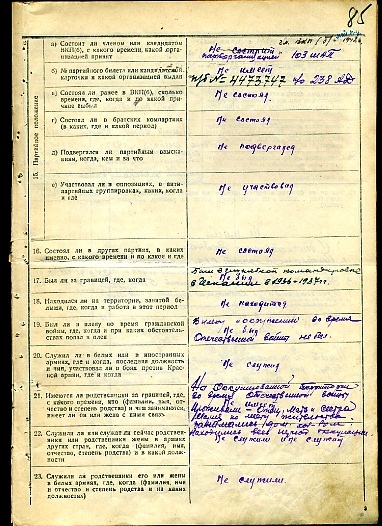 85
чл. ВКП(б) с
15. Партийное положение
а) Состоит ли членом или кандидатом ВКП(б), с какого времени, какой организацией принят
Не состоит
парторганизацией 103 ШАП
б) № партийного билета или кандидатской карточки и какой организацией выдан
Не имеет
п/б № 4473747 п/о 238
в) Состоял ли ранее в ВКП(б), сколько времени, где, когда и по какой причине выбыл
Не состоял
г) Состоял ли в братских компартиях (в каких, где и какой период)
Не состоял
д) Подвергался ли партийным взысканиям, когда, кем и за что
Не подвергался
е) Участвовал ли в оппозициях, в антипартийных группировках, каких, когда и где
Не участвовал
16. Состоял ли в других партиях, в каких именно, с какого времени и по какое и где
Не состоял
17. Был ли за границей, где, когда
Был в служебной командировке
Не был
в Испании в 1936-1937 гг.
18. Находился ли на территории, занятой белыми, где, когда и работа в этот период
Не находился
19. Был ли в плену во время гражданской войны, где, когда и при каких обстоятельствах попал в плен
во время
Не был
Отечественной войны не был
20. Служил ли в белых или в иностранных армиях, где и когда, последняя должность и чин, участвовал ли в боях против Красной армии, где и когда
Не служил
21. Имеются ли родственники за границей, где, с какого времени, кто (фамилия, имя, отчество и степень родства) и чем занимаются, имеет ли он или жена с ними связь
На оккупированной территории
во время Отечественной войны
Не имеет
22. Служили ли или служат ли сейчас родственники или родственники жены в армиях других стран, где, когда (фамилия, имя, отчество, степень родства) и в какой должности
Не служили и не служат
23. Служили ли родственники его или жены в белых армиях, где, когда (фамилия, имя и отчество и степень родства и на каких должностях)
Не служили.
3